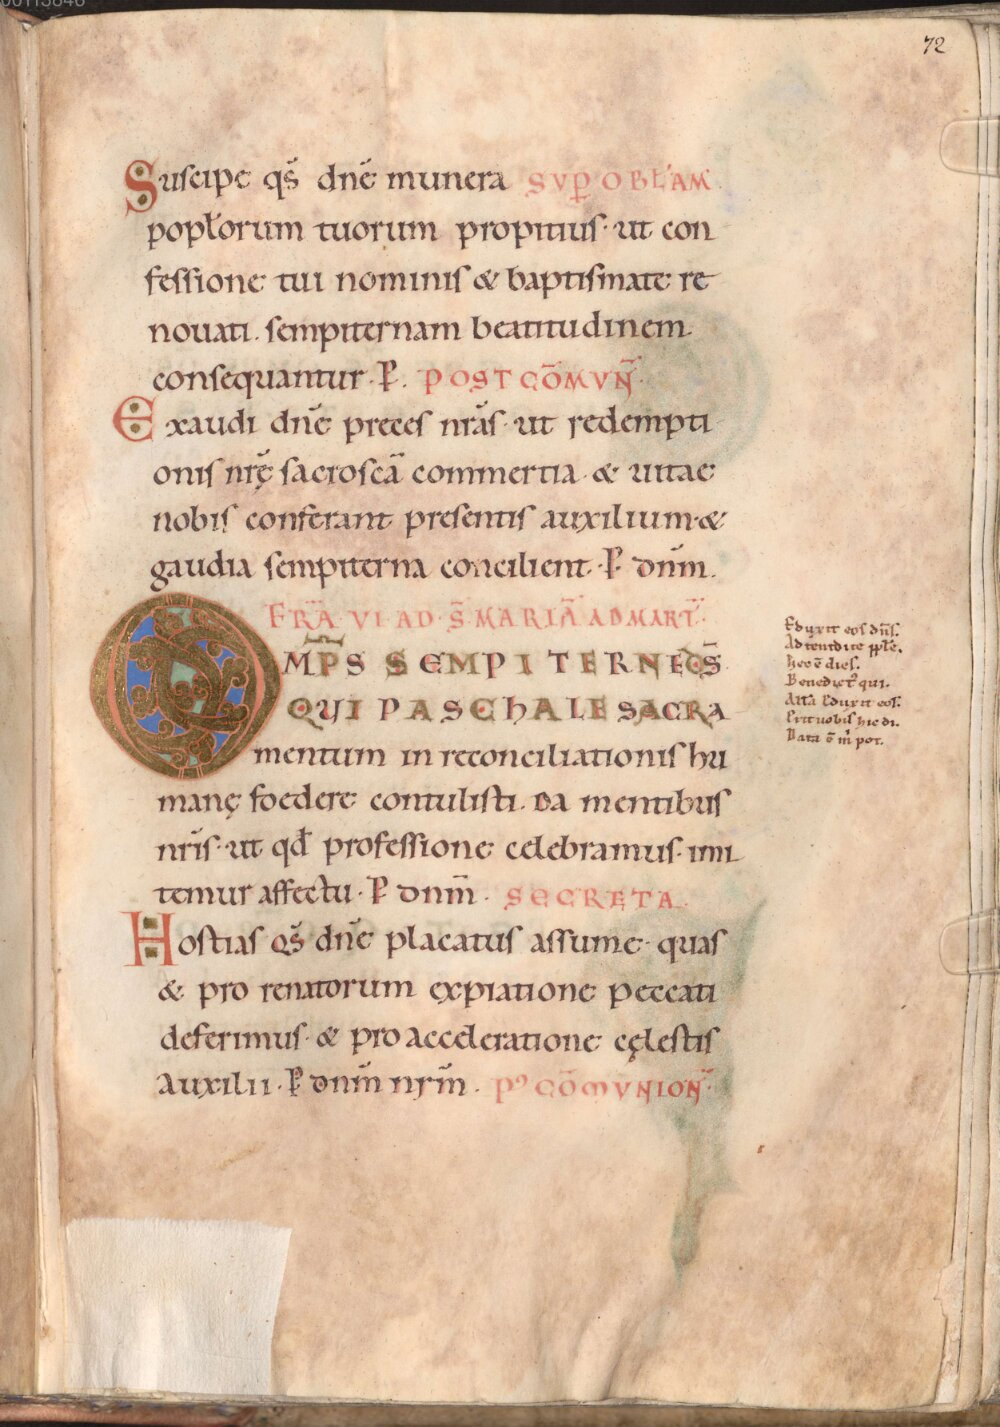 72
Suscipe qs̄ dnē munera SVP̄ OBLAM̄
poplorum tuorum propitius· ut con
fessione tui nominis & baptismate re
nouati. sempiternam beatitudinem
consequantur· P̄. POST COM̄VN̄·
Exaudi dnē preces nrās· ut redempti
onis nrę̄ sacroscā commertia· & uitae
nobis conferant presentis auxilium·&
gaudia sempiterna concilient· P̄ dnm̄.
FRĀ VI AD S̄ MARIĀ AD MART̄·
OMP̄S SEMPITERNE D̄S
QUI PASCHALE SACRA
mentum in reconciliationis hu
manę foedere contulisti. Da mentibus
nrīs· ut qd̄ professione celebramus· imi
temur affectu· P̄ dnm̄. SECRETA.
Hostias qs̄ dnē placatus assume· quas
& pro renatorum expiatione peccati
deferimus· & pro acceleratione cęlestis
auxilii· P̄ dnm̄ nrm̄. P' COM̄VNION̄·
Eduxit eos dn̄s.
Adtendite pplē.
hec ē dies.
Benedict' qui.
Eduxit eos.
Erit uobis hic di.
Data ē m̄ pot.